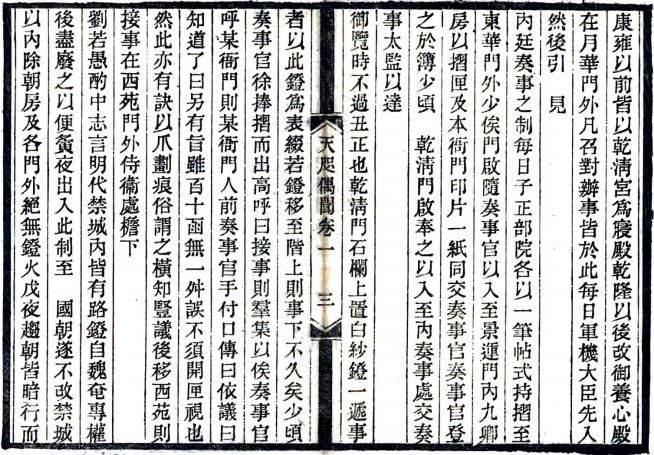 康雍以前皆以乾淸宮爲寢殿乾隆以後改御養心殿
在月華門外凡召對辦事皆於此每日軍機大臣先入
然後引　見
內廷奏事之制每日子正部院各以一筆帖式持摺至
東華門外少俟門啟隨奏事官以入至景運門內九卿
房以摺匣及本衙門印片一紙同交奏事官奏事官登
之於簿少頃　乾淸門啟奉之以入至內奏事處交奏
事太監以達
御覽時不過丑正也乾淸門石欄上置白紗鐙一遞事
天咫偶聞卷一　三
者以此鐙爲表綴若鐙移至階上則事下不久矣少頃
奏事官徐捧摺而出高呼曰接事則羣集以俟奏事官
呼某衙門則某衙門人前奏事官手付口傳曰依議曰
知道了曰另有旨雖百十函無一舛誤不須開匣視也
然此亦有訣以爪劃痕俗謂之橫知豎議後移西苑則
接事在西苑門外侍衞處檐下
劉若愚酌中志言明代禁城內皆有路鐙自魏奄專權
後盡廢之以便夤夜出入此制至　國朝遂不改禁城
以內除朝房及各門外絕無鐙火戊夜趨朝皆暗行而